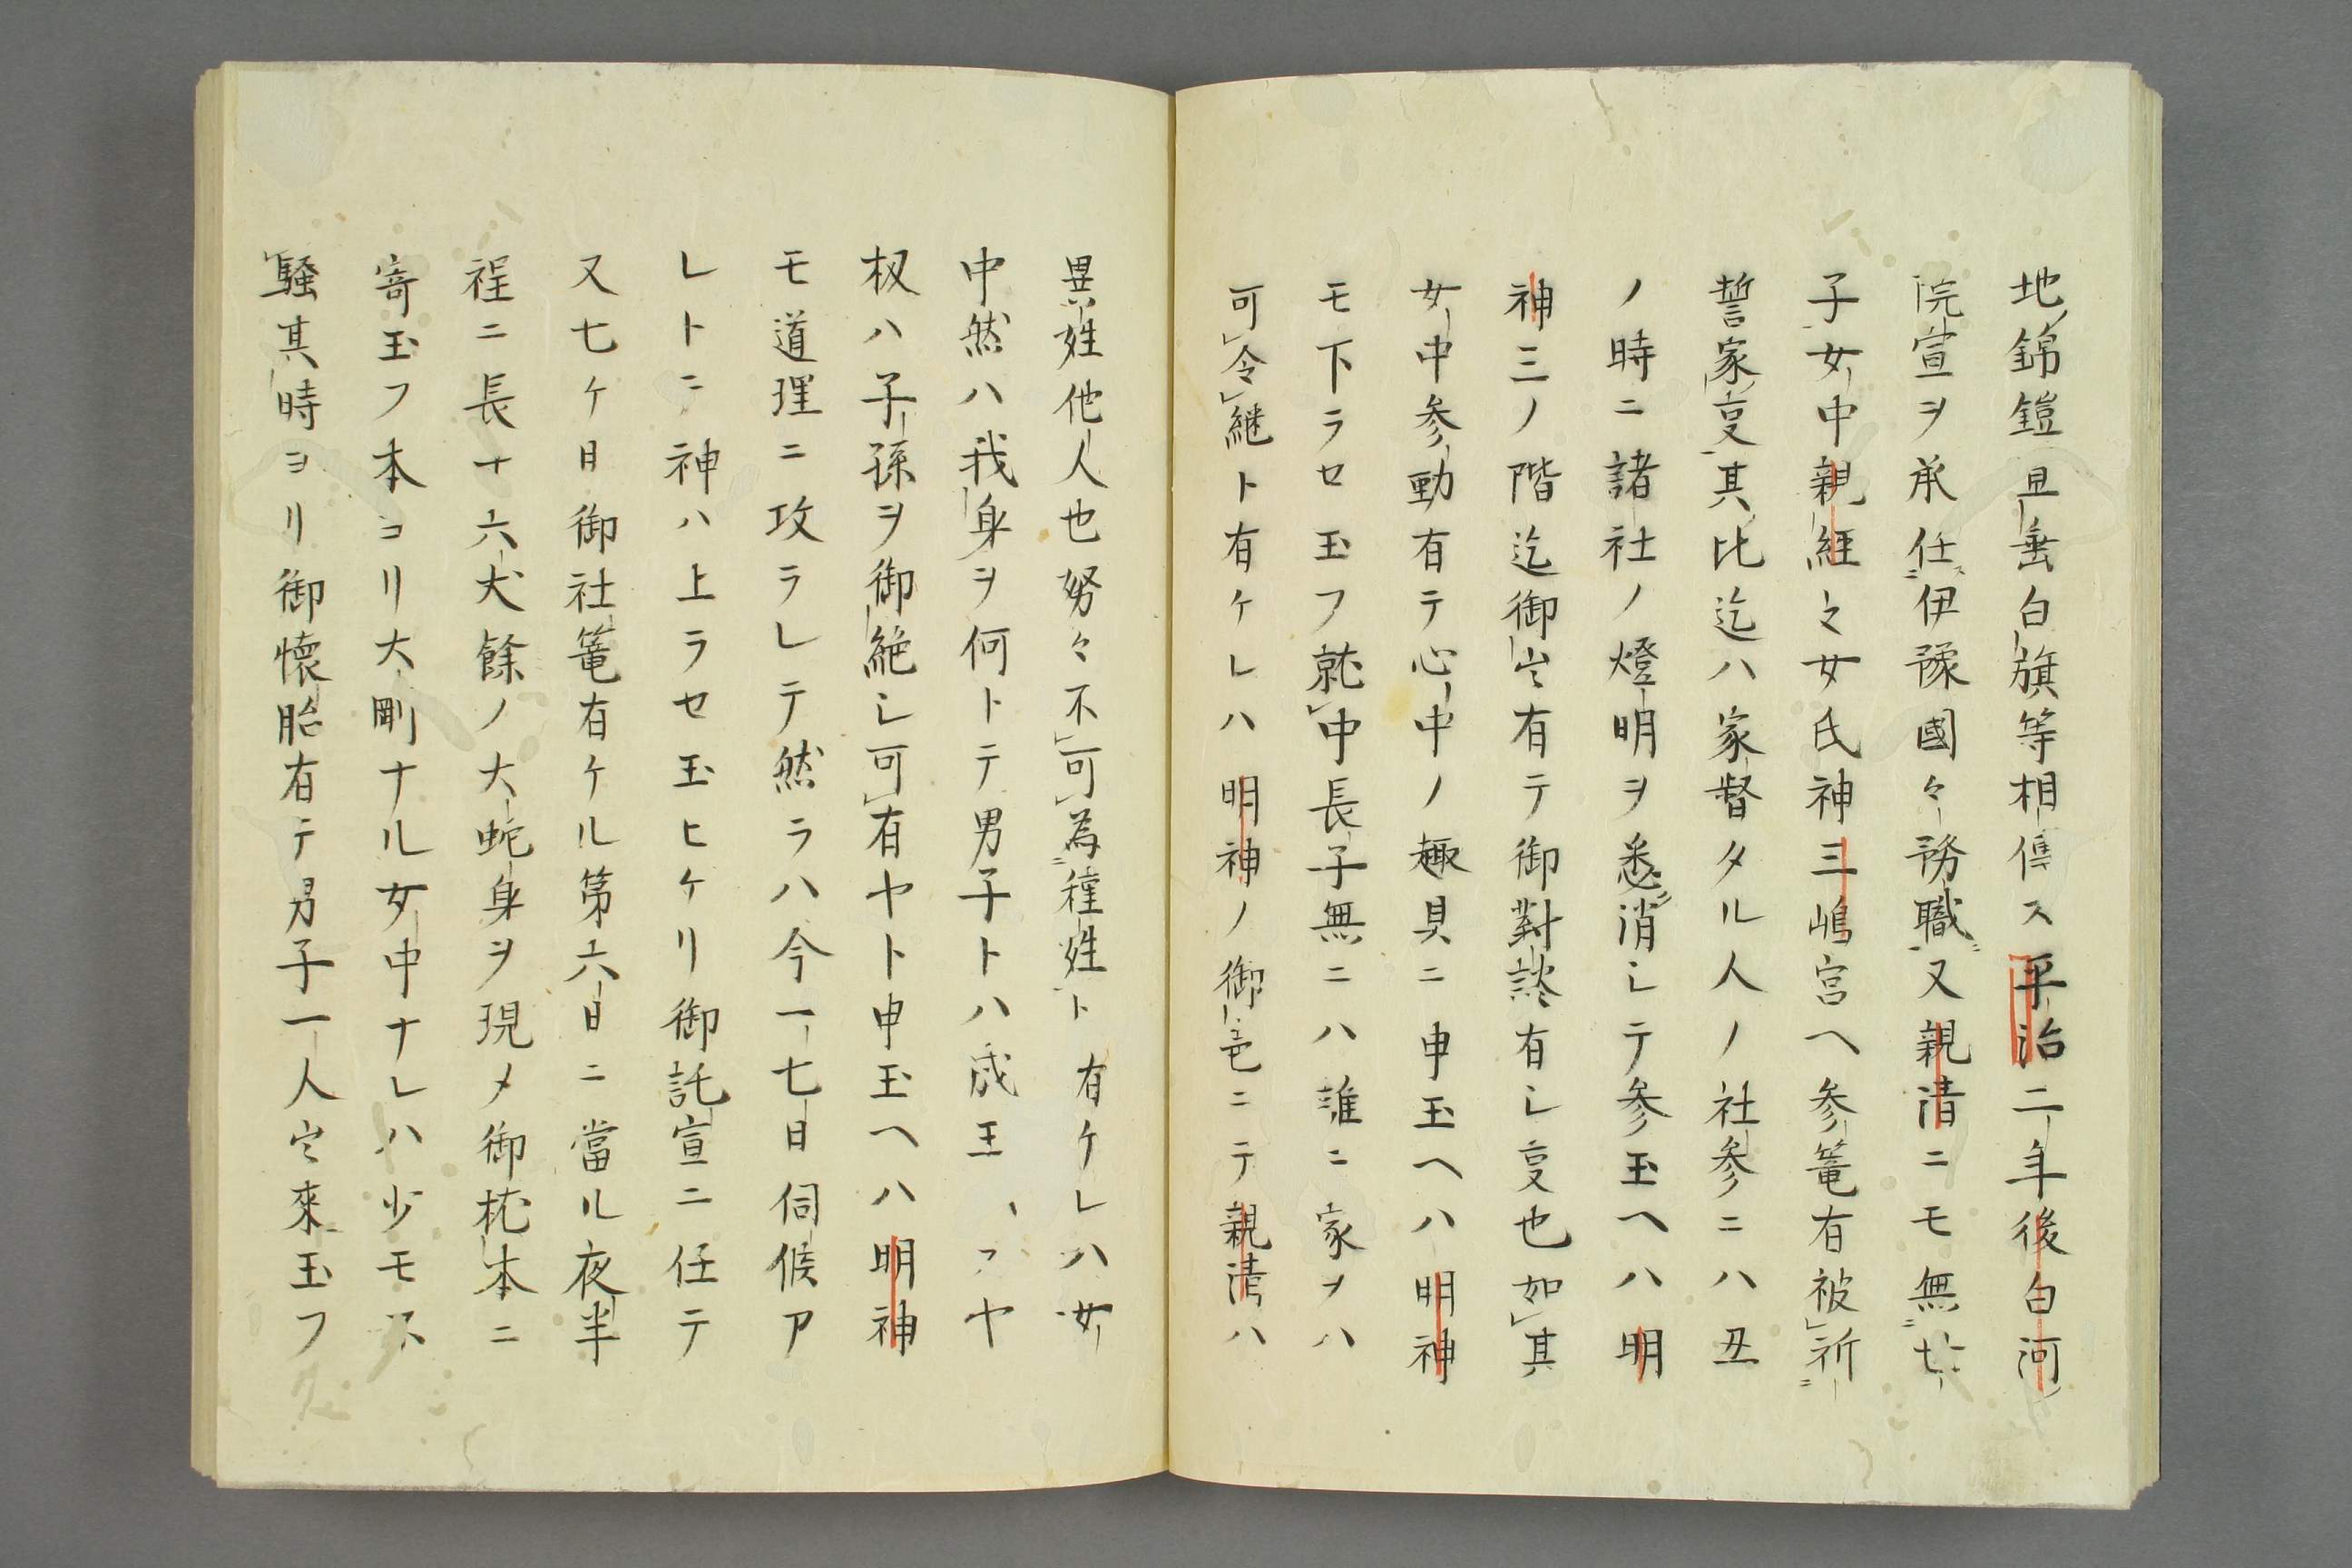 地錦鎧且垂白旗等相傳ス平治二年後白河
院宣ヲ承任伊豫國々務職又親清ニモ無
子女中親経之女氏神三嶋宮ヘ参篭有被祈
誓家㕝其比迄ハ家督タル人ノ社参ニハ丑
ノ時ニ諸社ノ燈明ヲ悉消シテ参玉ヘハ明
神三ノ階迄御出有テ御對談有シ㕝也如其
女中参動有テ心中ノ趣具ニ申玉ヘハ明神
モ下ラセ玉フ就中長子無ニハ誰ニ家ヲハ
可令継ト有ケレハ明神ノ御色ニテ親清ハ
異姓他人也努々不可為種姓ト有ケレハ女
中然ハ我身ヲ何トテ男子トハ成玉ハヌヤ
扨ハ子孫ヲ御絶シ可有ヤト申玉ヘハ明神
モ道理ニ攻ラレテ然ラハ今一七日伺候ア
レトニ神ハ上ラセ玉ヒケリ御託宣ニ任テ
又七ケ日御社篭有ケル第六日ニ當ル夜半
程ニ長十六丈餘ノ大蛇身ヲ現メ御枕本ニ
寄玉フ本ヨリ大剛ナル女中ナレハ少モ不
騒其時ヨリ御懐胎有テ男子一人出來玉フ